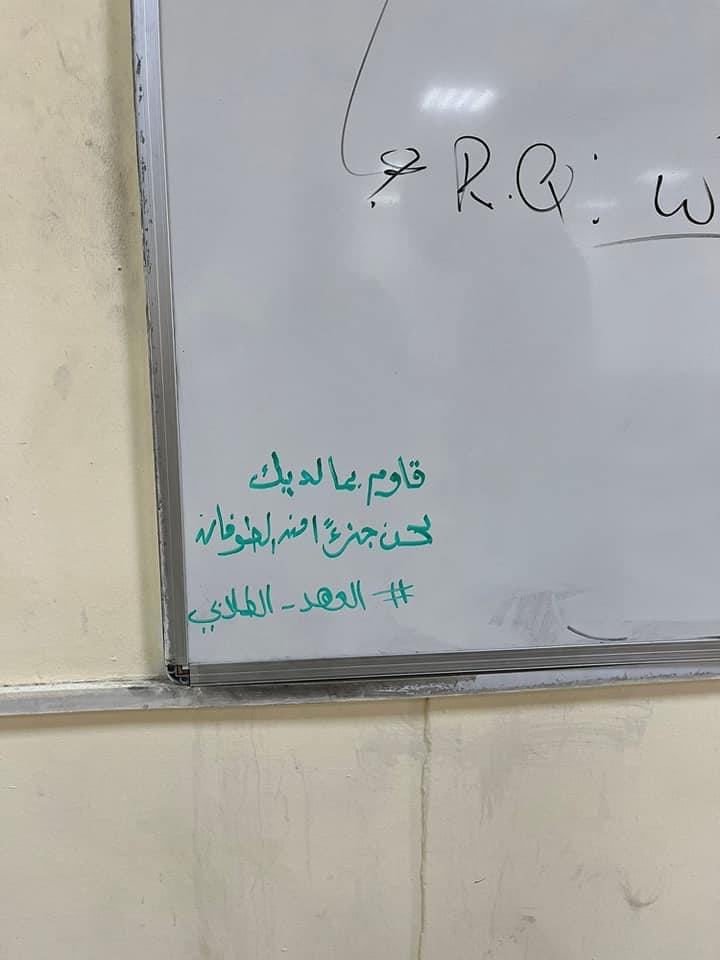 * R.Q: w
قاوم بما لديك
نحن جزءًا من الطوفان
# العهد - الطلابي